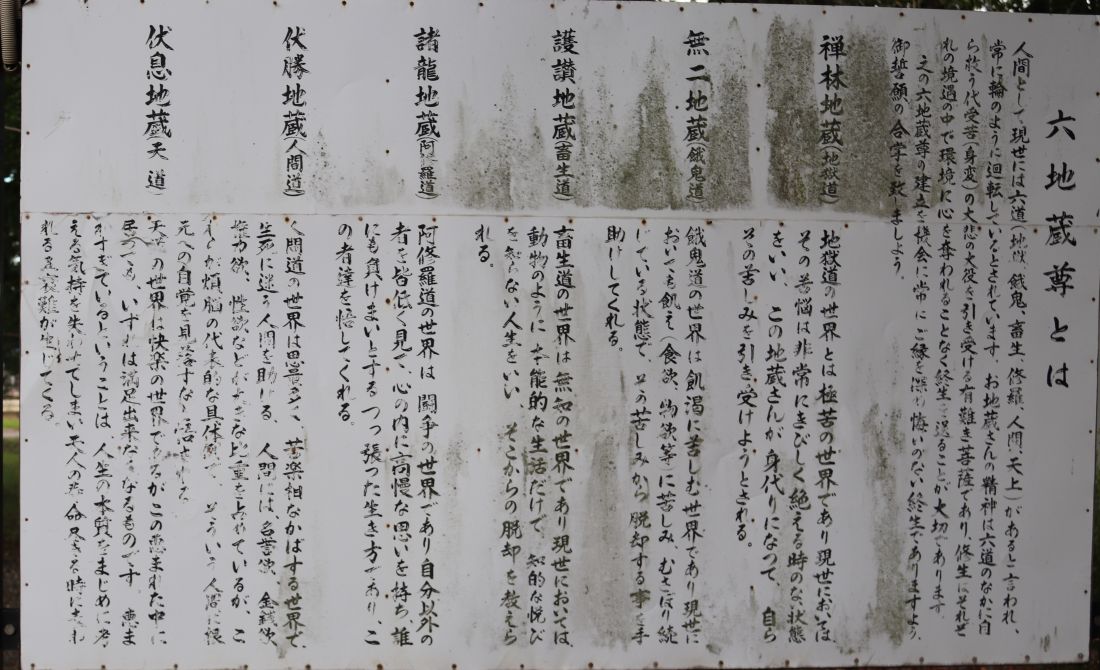 六地蔵尊とは
人間として現世には六道(地獄、餓鬼、畜生、修羅、人間、天上)があると言われ、
常に輪のように迴転しているとされています。お地蔵さんの精神は六道のなかに自
ら救う代受苦(身変)の大悲の大役を引き受ける有難き菩薩であり、修生はそれぞ
れの境遇の中で環境に心を奪われることなく終生を送ることが大切であります
この六地蔵尊の建立を機会に常にご縁を深め悔いのない終生でありますよう
御誓願の合掌を致しましょう。
禅林地蔵(地獄道)
地獄道の世界とは極苦の世界であり現世においては、
その苦悩は非常にきびしく絶える時のない状態
をいい、この地蔵さんが身代りになって、自ら
その苦しみを引き受けようとされる。
無二地蔵(餓鬼道)
餓鬼道の世界は飢渇に苦しむ世界であり現世に
おいても飢え(食欲、物欲等)に苦しみ、むさぼり続
けている状態で、その苦しみから脱却する事を手
助けしてくれる。
護讃地蔵(畜生道)
畜生道の世界は無知の世界であり現世においては、
動物のように本能的な生活だけで、知的な悦び
を知らない人生をいい、そこからの脱却を教えら
れる。
諸龍地蔵(阿修羅道)
阿修羅道の世界は、闘争の世界であり自分以外の
者を皆低く見て、心の内に高慢な思いを持ち、誰
にも負けまいとするつっ張った生き方であり、こ
の者達を悟してくれる。
伏勝地蔵(人間道)
人間道の世界は思いが多く、苦楽相なかばする世界で、
生死に迷う人間を助ける、人間には、名誉欲、金銭欲、
権力欲、性欲などが大きな比重を占めているが、こ
れらが煩悩の代表的な具体で、そういう人間に根
元への自覚を見落すなと悟される
伏息地蔵(天道)
天道の世界は快楽の世界であるがこの恵まれた中に
居っても、いずれは満足出来なくなるものです。恵ま
れすぎているということは、人生の本質をまじめに考
える気持を失わせてしまい天人の寿命尽きる時にまわ
れる
難が生じてくる。